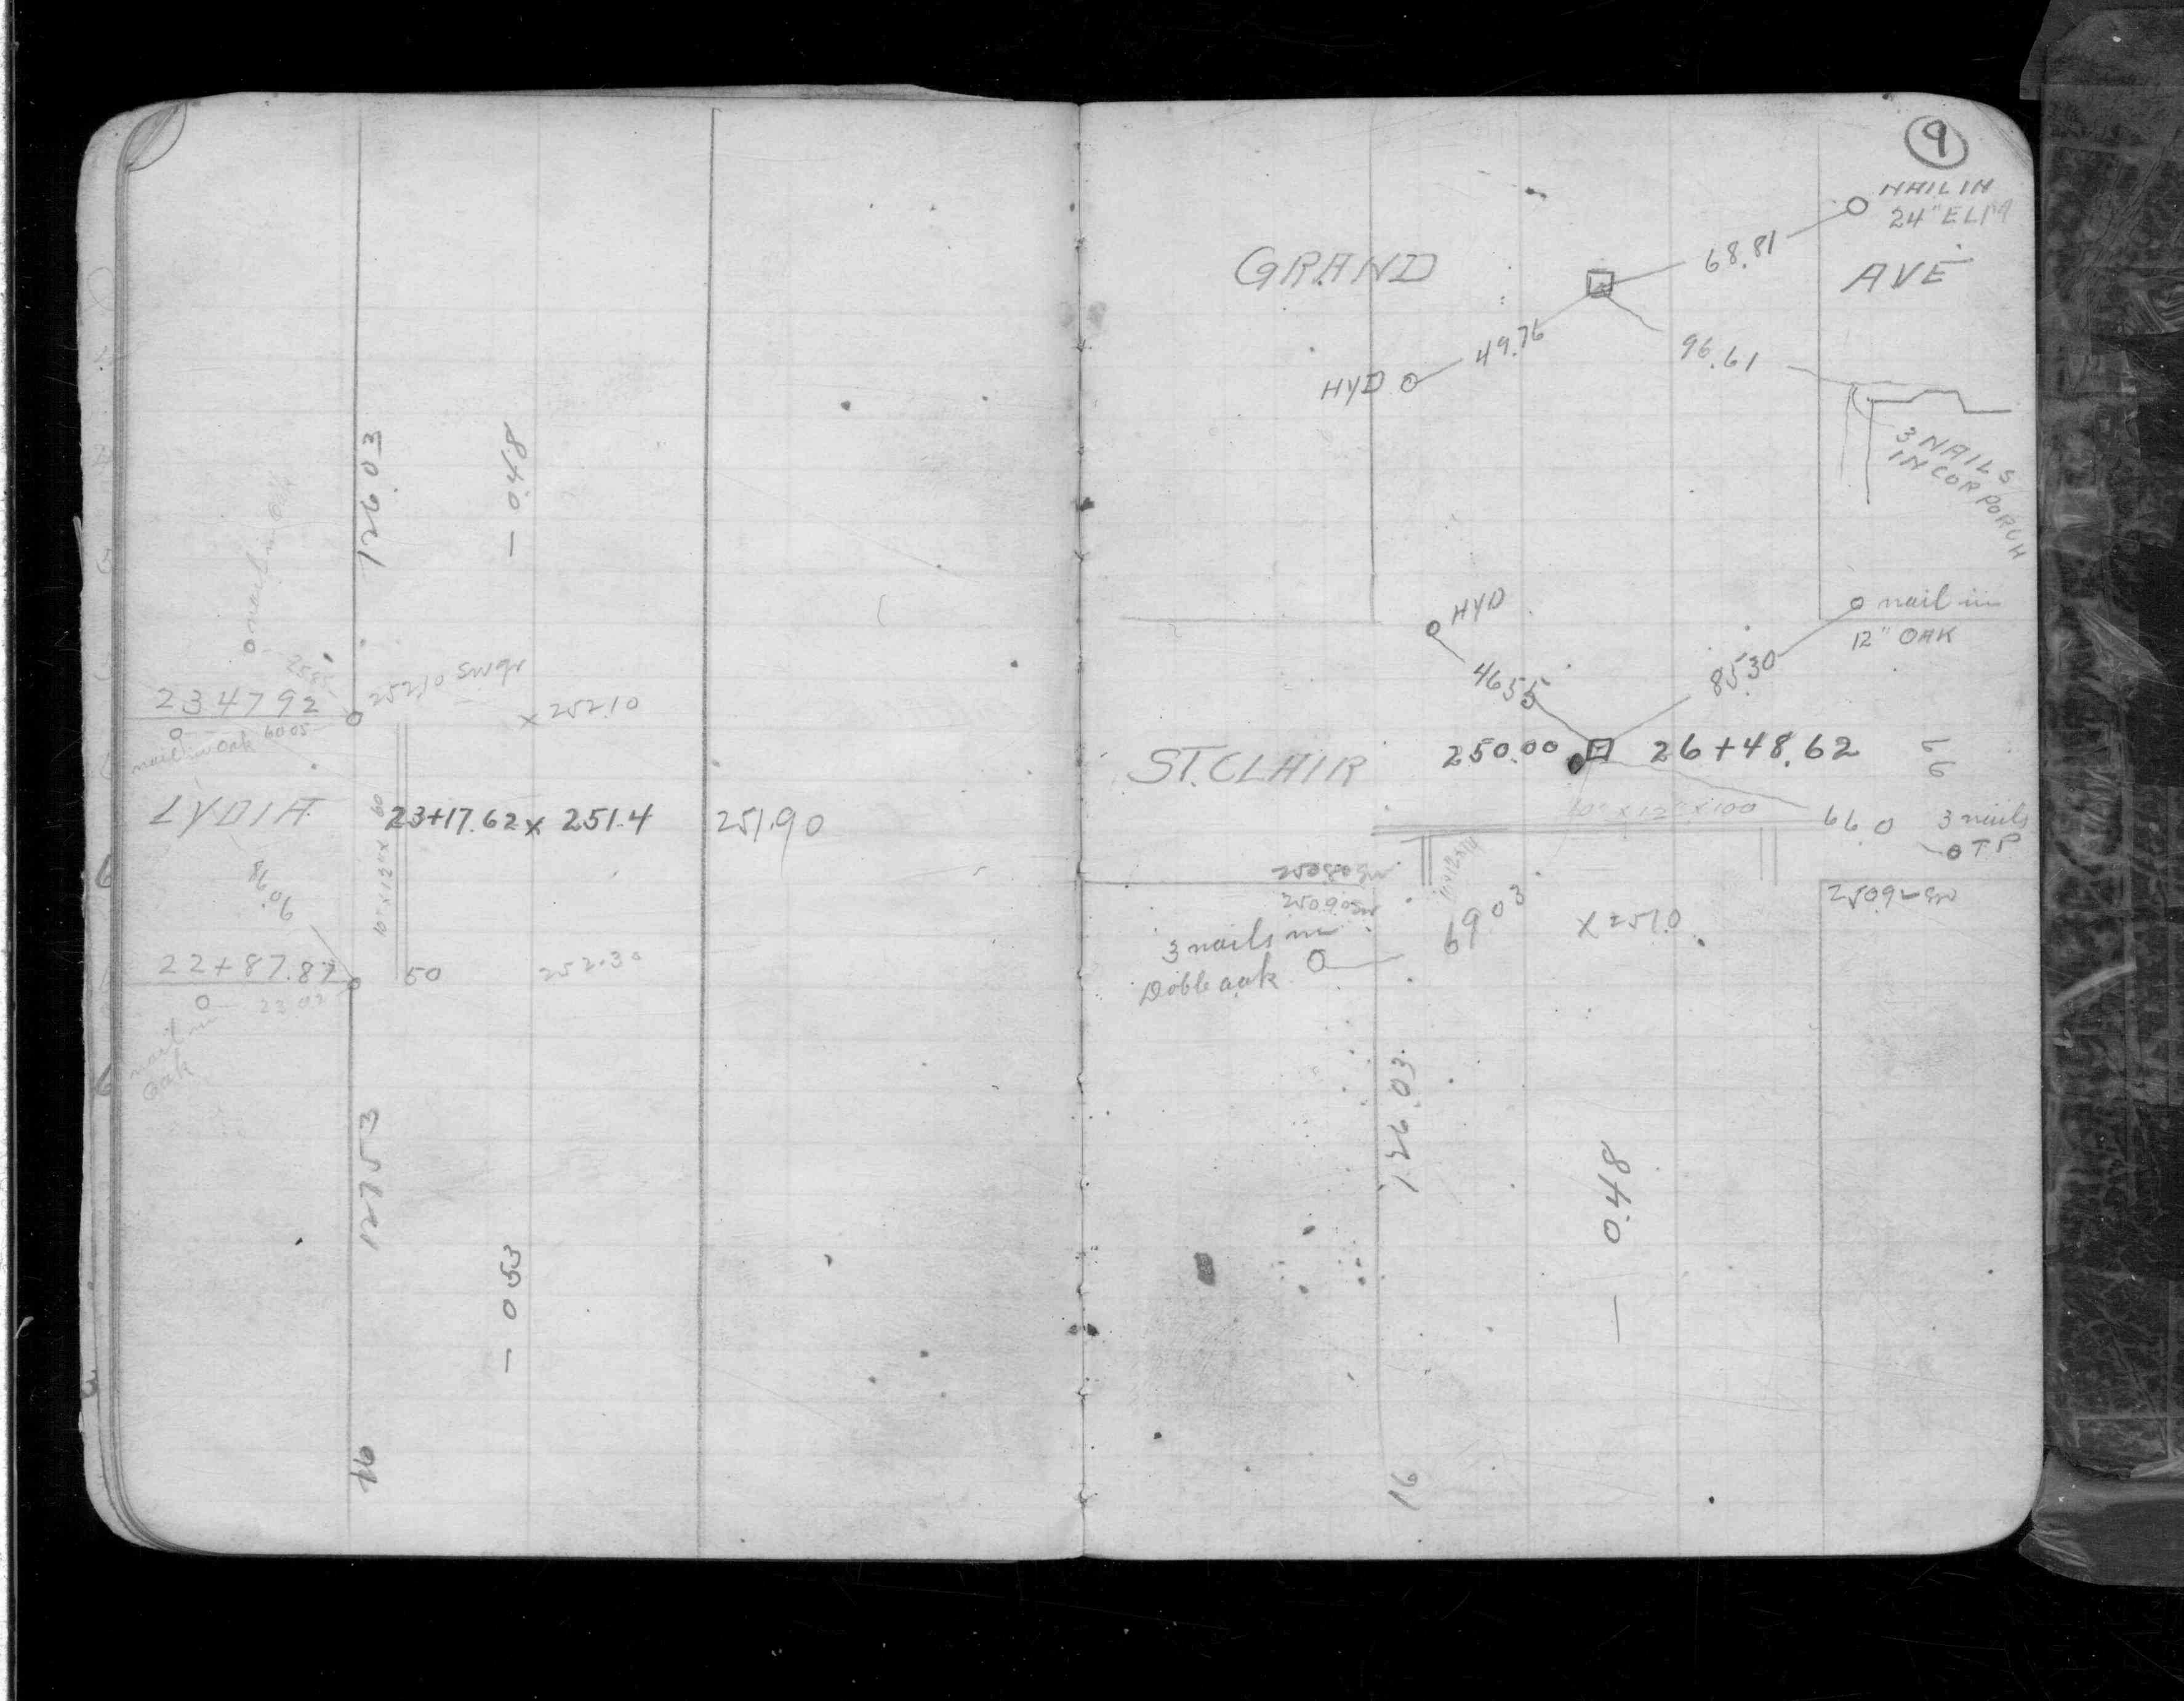 126.03
— 0.48
nail in Oak
25.85
252.10 Sw gr
x 252.10
234792
nail in Oak 60.05
LYDIA
10" x 12" x 60
23+17.62 x 251.4
251.90
90.98
22+87.87
50
252.30
23.02
nail in
Oak
127.53
— 053
16
9
NAIL IN
24" ELM
GRAND
AVE
68.81
49.76
HYD
96.61
3 NAILS
IN COR PORCH
HYD
nail in
12" OAK
46.55
85.30
ST. CLAIR
250.00
26+48.62
66
10" x 12" x 100
66.0
3 nails
TP
250.80 Sw
250.90 Sw
10x12x14
250.92 Sw
3 nails in
Doble oak
69.03
x 251.0
126.03
— 0.48
16